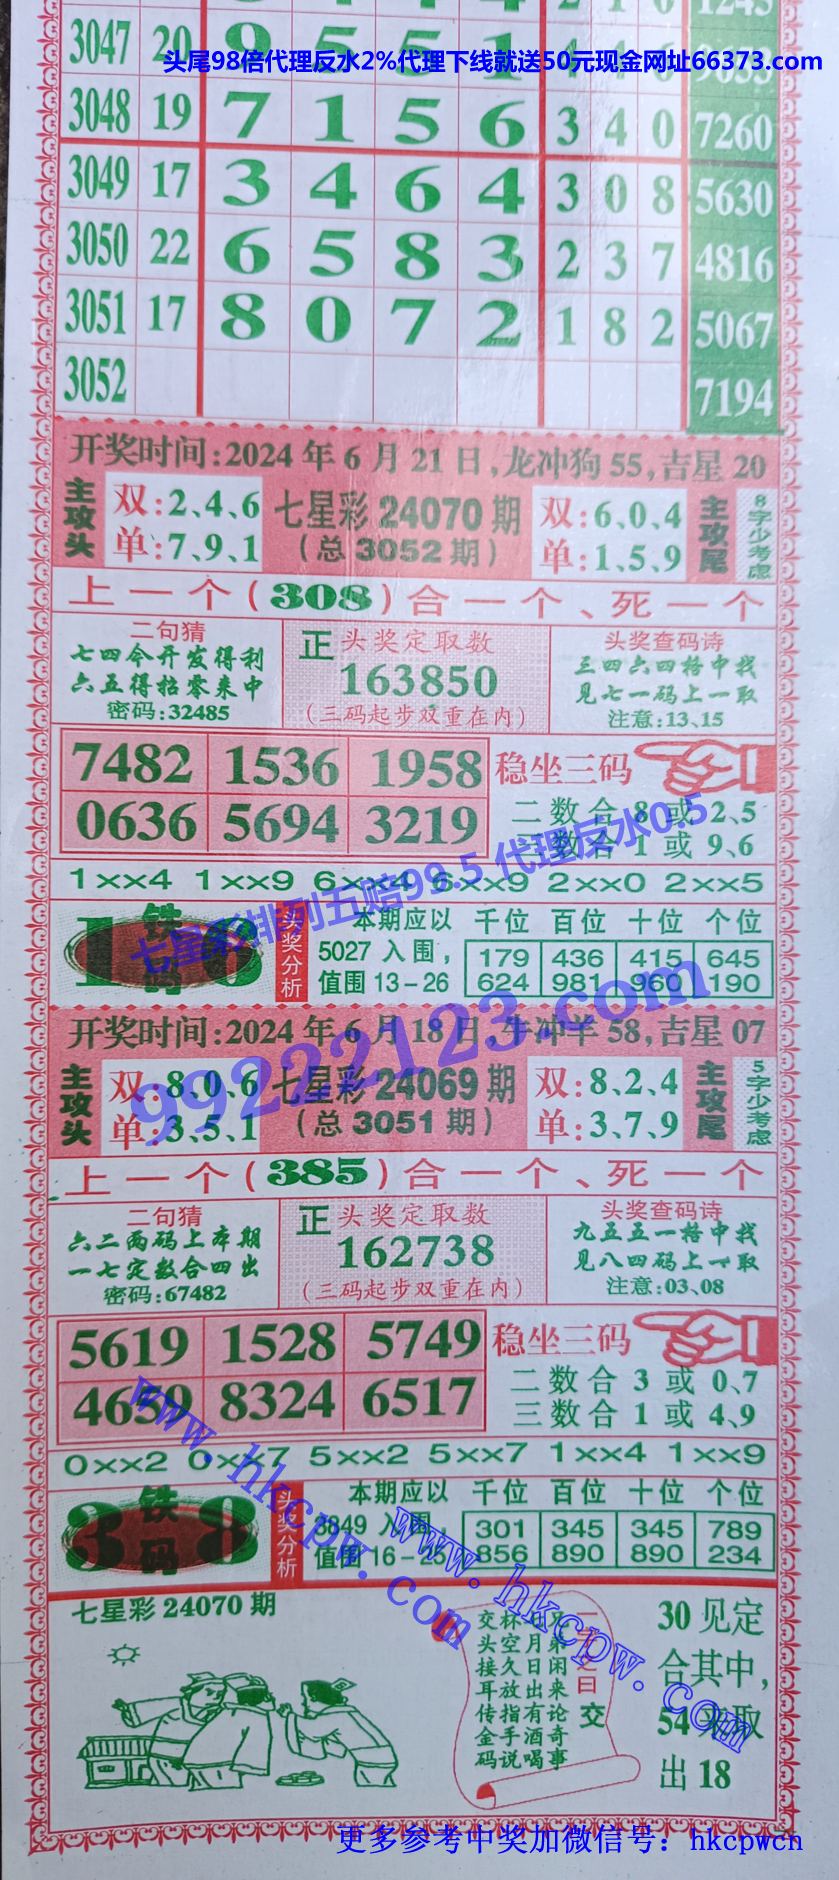 1245
3047 20 9 5 5 1 4 4 6 9633
头尾98倍代理反水2%代理下线就送50元现金网址66373.com
3048 19 7 1 5 6 3 4 0 7260
3049 17 3 4 6 4 3 0 8 5630
3050 22 6 5 8 3 2 3 7 4816
3051 17 8 0 7 2 1 8 2 5067
3052 7194
开奖时间:2024年6月21日,龙冲狗55,吉星20
主攻头 双:2、4、6 七星彩24070期 双:6、0、4 主攻尾 8字少考虑
单:7、9、1 (总3052期) 单:1、5、9
上一个(308)合一个、死一个
二句猜 正 头奖定取数 头奖查码诗
七四今开发得利 163850 三四六四格中找
六五得招零来中 见七一码上一取
密码:32485 (三码起步双重在内) 注意:13、15
7482 1536 1958 稳坐三码
0636 5694 3219 二数合8或2、5
三数合1或9、6
1××4 1××9 6××4 6××9 2××0 2××5
七星彩排列五赔99.5 代理反水0.5
1铁码6 头奖分析 本期应以 千位 百位 十位 个位
5027入围, 179 436 415 645
值围13-26 624 981 960 190
99222123.com
开奖时间:2024年6月18日,牛冲羊58,吉星07
主攻头 双:8、0、6 七星彩24069期 双:8、2、4 主攻尾 5字少考虑
单:3、5、1 (总3051期) 单:3、7、9
上一个(385)合一个、死一个
二句猜 正 头奖定取数 头奖查码诗
六二两码上本期 162738 九五五一格中找
一七定数合四出 见八四码上一取
密码:67482 (三码起步双重在内) 注意:03、08
5619 1528 5749 稳坐三码
4659 8324 6517 二数合3或0、7
三数合1或4、9
0××2 0××7 5××2 5××7 1××4 1××9
3铁码8 头奖分析 本期应以 千位 百位 十位 个位
3849入围, 301 345 345 789
值围16-25 856 890 890 234
www.hkcpw.com
www.hkcpw.com
七星彩24070期
曰交
闲来论奇事
月日出有酒喝
杯空久放指手说
交头接耳传金码
30见定
合其中,
54来取
出18
更多参考中奖加微信号：hkcpwcn